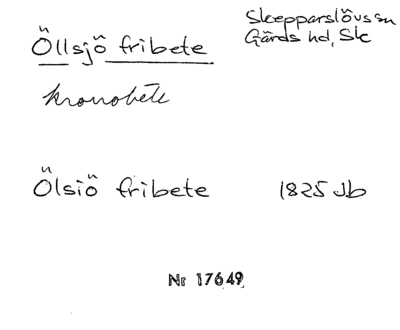 Öllsjö fribete
Skepparslövs sn
Gärds hd, Sk
kronobete
Ölsiö fribete 1825 Jb
Nr 17649